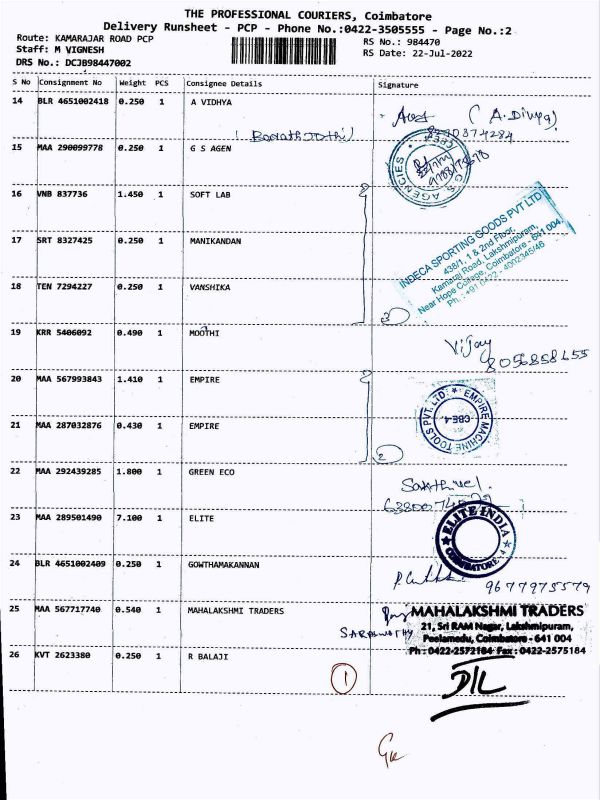 THE PROFESSIONAL COURIERS, Coimbatore
Delivery Runsheet - PCP - Phone No.:0422-3505555 - Page No.:2
Route: KAMARAJAR ROAD PCP
RS No.: 984470
Staff: M VIGNESH
RS Date: 22-Jul-2022
DRS No.: DCJB98447002
S No Consignment No Weight PCS Consignee Details Signature
14 BLR 4651002418 0.250 1 A VIDHYA
(A. Divya)
8270374284
15 MAA 290099778 0.250 1 G S AGEN
G.S. AGENCIES
16 VNB 837736 1.450 1 SOFT LAB
INDECA SPORTING GOODS PVT LTD
438/1, 1 & 2nd Floor,
Kamaraj Road, Lakshmipuram,
Near Hope College, Coimbatore - 641 004.
Ph.: +91 0422 - 4002345/46
17 SRT 8327425 0.250 1 MANIKANDAN
18 TEN 7294227 0.250 1 VANSHIKA
3
19 KRR 5406092 0.490 1 MOOTHI
Vijay
8056858655
20 MAA 567993843 1.410 1 EMPIRE
EMPIRE MACHINE TOOLS PVT. LTD.
CBE-4
21 MAA 287032876 0.430 1 EMPIRE
2
22 MAA 292439285 1.800 1 GREEN ECO
Sakthivel.
23 MAA 289501490 7.100 1 ELITE
ELITE INDIA
COIMBATORE
24 BLR 4651002409 0.250 1 GOWTHAMAKANNAN
9677975579
25 MAA 567717740 0.540 1 MAHALAKSHMI TRADERS
SARASWATHY
MAHALAKSHMI TRADERS
21, Sri RAM Nagar, Lakshmipuram,
Peelamedu, Coimbatore - 641 004
Ph : 0422-2572184 Fax : 0422-2575184
26 KVT 2623380 0.250 1 R BALAJI
1
D/L